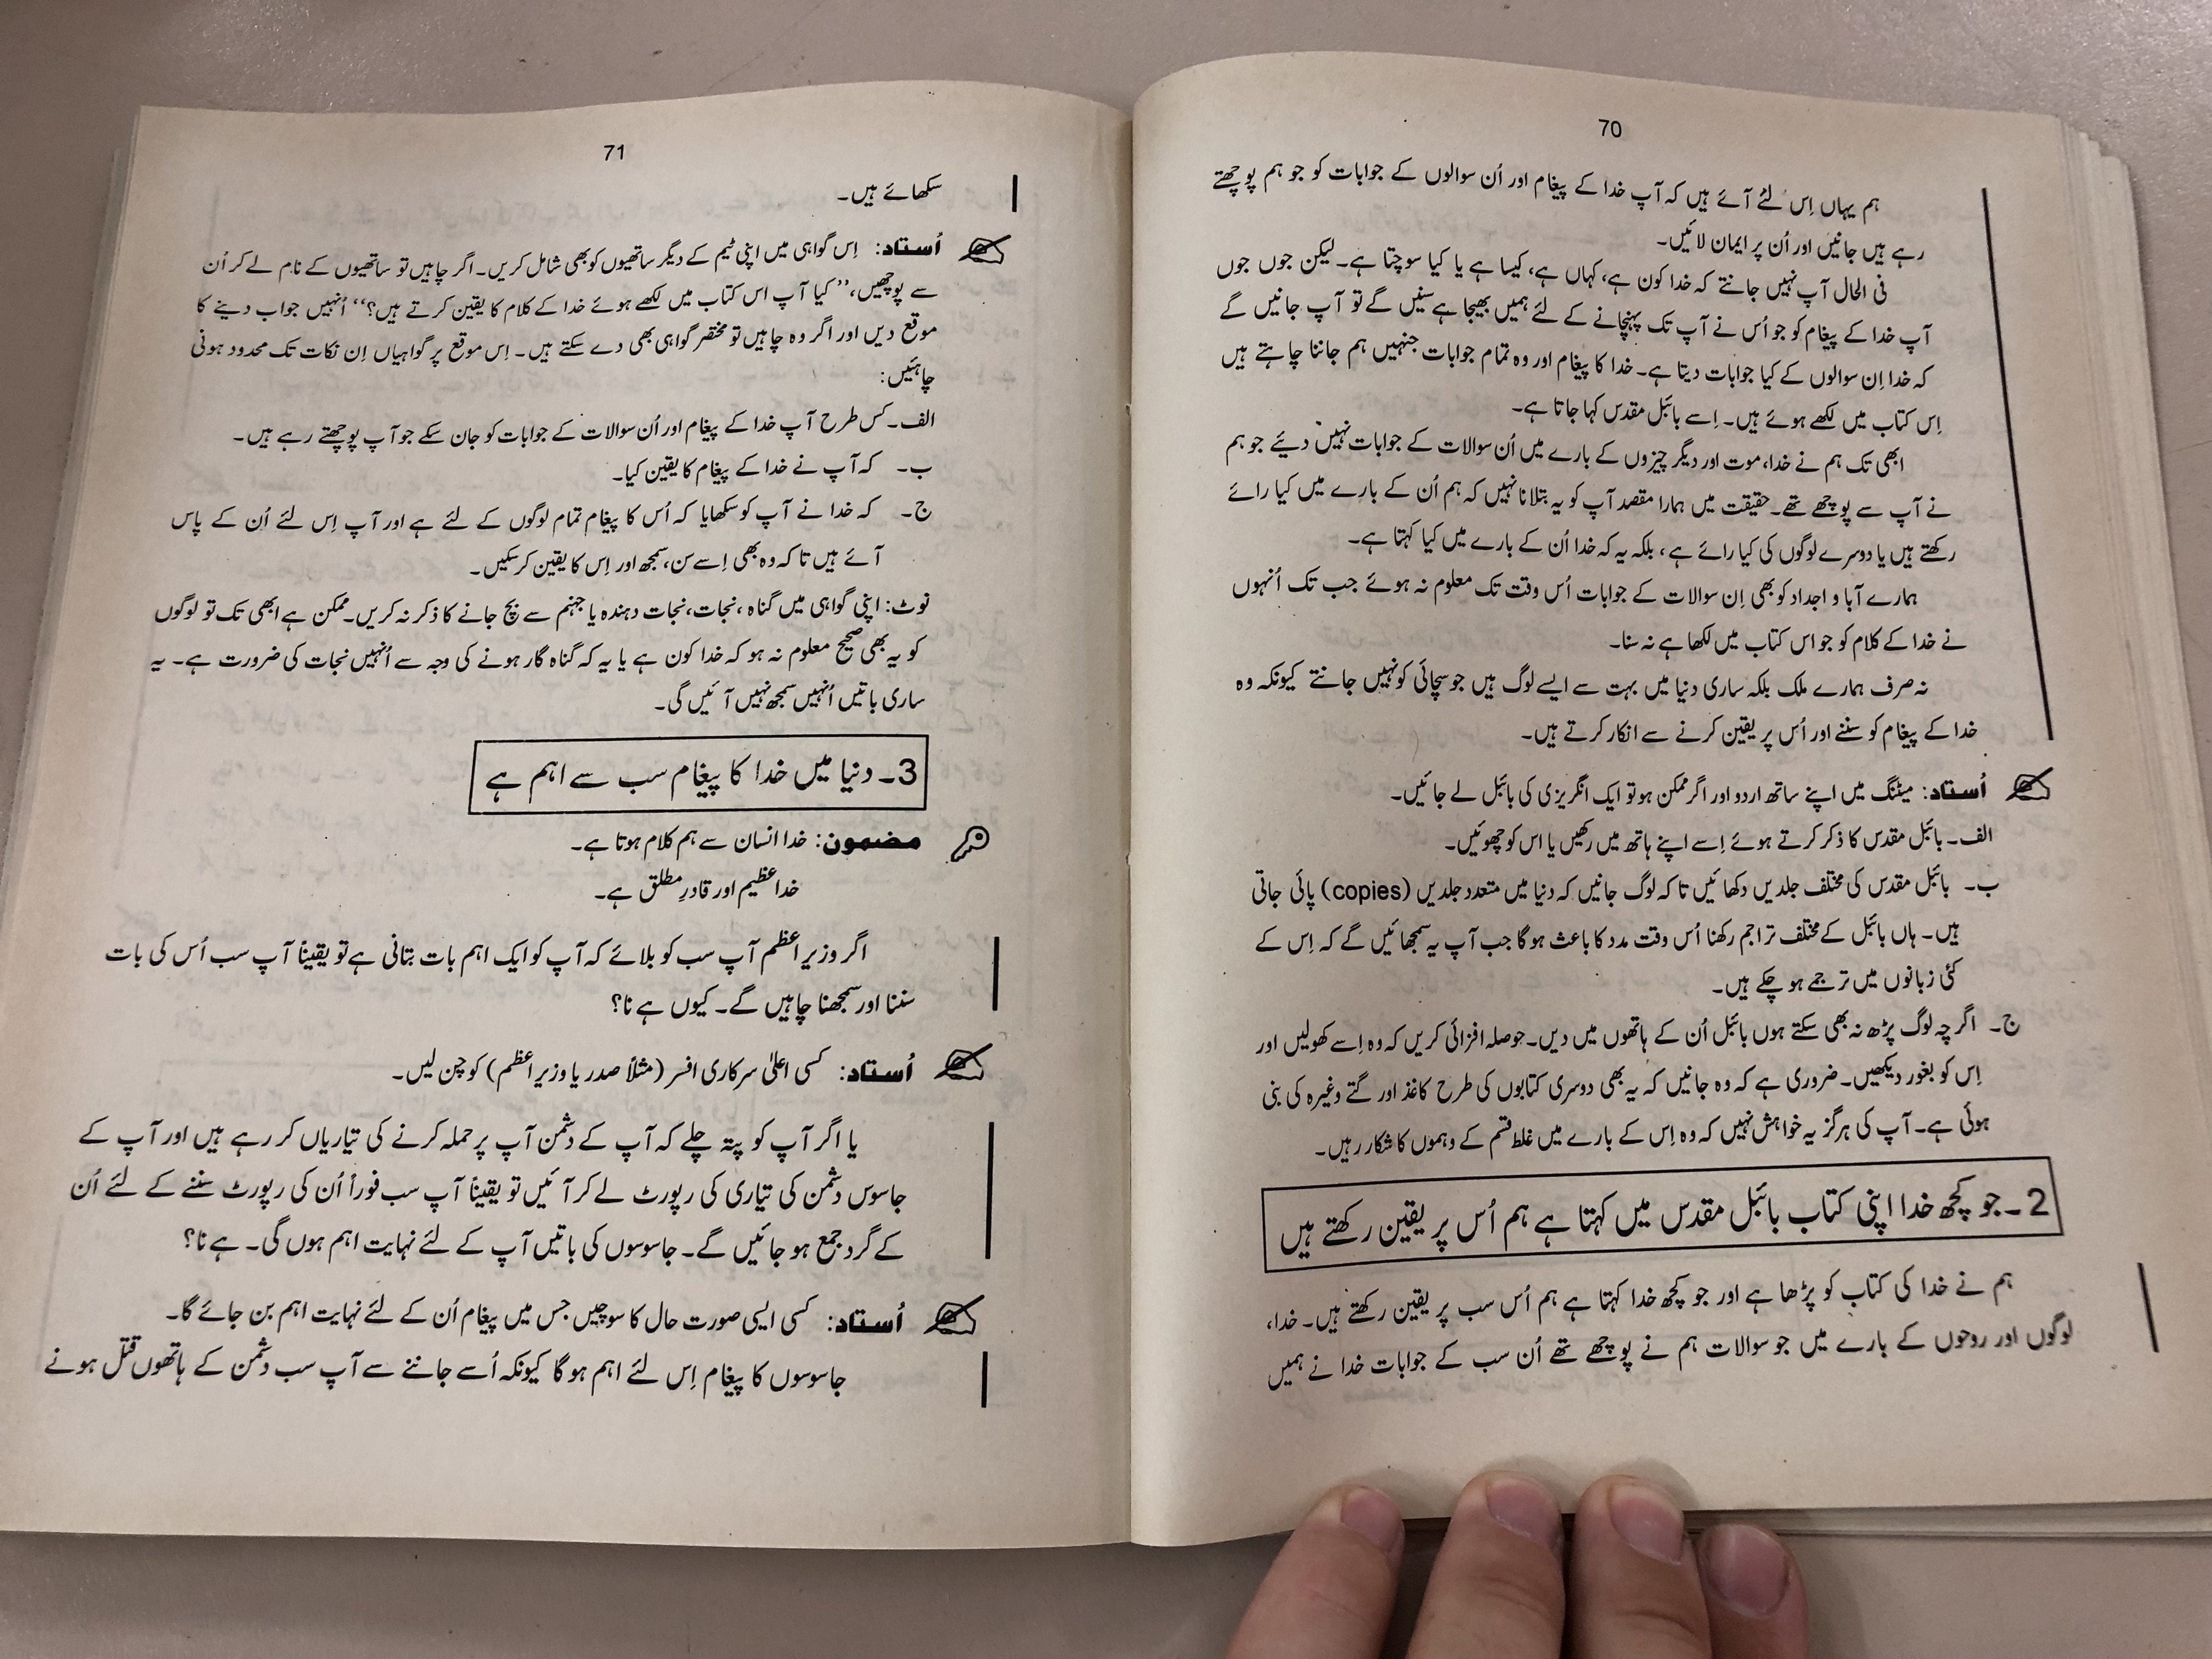 70
ہم یہاں اِس لئے آئے ہیں کہ آپ خدا کے پیغام اور اُن سوالوں کے جوابات کو جو ہم پوچھتے
رہے ہیں جانیں اور اُن پر ایمان لائیں۔
فی الحال آپ نہیں جانتے کہ خدا کون ہے، کہاں ہے، کیسا ہے یا کیا سوچتا ہے۔ لیکن جوں جوں
آپ خدا کے پیغام کو جو اُس نے آپ تک پہنچانے کے لئے ہمیں بھیجا ہے سنیں گے تو آپ جانیں گے
کہ خدا اِن سوالوں کے کیا جوابات دیتا ہے۔ خدا کا پیغام اور وہ تمام جوابات جنہیں ہم جاننا چاہتے ہیں
اِس کتاب میں لکھے ہوئے ہیں۔ اِسے بائبل مقدس کہا جاتا ہے۔
ابھی تک ہم نے خدا، موت اور دیگر چیزوں کے بارے میں اُن سوالات کے جوابات نہیں دیئے جو ہم
نے آپ سے پوچھے تھے۔ حقیقت میں ہمارا مقصد آپ کو یہ بتلانا نہیں کہ ہم اُن کے بارے میں کیا رائے
رکھتے ہیں یا دوسرے لوگوں کی کیا رائے ہے، بلکہ یہ کہ خدا اُن کے بارے میں کیا کہتا ہے۔
ہمارے آبا و اجداد کو بھی اِن سوالات کے جوابات اُس وقت تک معلوم نہ ہوئے جب تک اُنہوں
نے خدا کے کلام کو جو اس کتاب میں لکھا ہے نہ سنا۔
نہ صرف ہمارے ملک بلکہ ساری دنیا میں بہت سے ایسے لوگ ہیں جو سچائی کو نہیں جانتے کیونکہ وہ
خدا کے پیغام کو سننے اور اُس پر یقین کرنے سے انکار کرتے ہیں۔
اُستاد: میٹنگ میں اپنے ساتھ اردو اور اگر ممکن ہو تو ایک انگریزی کی بائبل لے جائیں۔
الف۔ بائبل مقدس کا ذکر کرتے ہوئے اِسے اپنے ہاتھ میں رکھیں یا اس کو چھوئیں۔
ب۔ بائبل مقدس کی مختلف جلدیں دکھائیں تاکہ لوگ جانیں کہ دنیا میں متعدد جلدیں (copies) پائی جاتی
ہیں۔ ہاں بائبل کے مختلف تراجم رکھنا اُس وقت مدد کا باعث ہوگا جب آپ یہ سمجھائیں گے کہ اِس کے
کئی زبانوں میں ترجمے ہو چکے ہیں۔
ج۔ اگرچہ لوگ پڑھ نہ بھی سکتے ہوں بائبل اُن کے ہاتھوں میں دیں۔ حوصلہ افزائی کریں کہ وہ اِسے کھولیں اور
اِس کو بغور دیکھیں۔ ضروری ہے کہ وہ جانیں کہ یہ بھی دوسری کتابوں کی طرح کاغذ اور گتے وغیرہ کی بنی
ہوئی ہے۔ آپ کی ہرگز یہ خواہش نہیں کہ وہ اِس کے بارے میں غلط قسم کے وہموں کا شکار رہیں۔
2۔ جو کچھ خدا اپنی کتاب بائبل مقدس میں کہتا ہے ہم اُس پر یقین رکھتے ہیں
ہم نے خدا کی کتاب کو پڑھا ہے اور جو کچھ خدا کہتا ہے ہم اُس سب پر یقین رکھتے ہیں۔ خدا،
لوگوں اور روحوں کے بارے میں جو سوالات ہم نے پوچھے تھے اُن سب کے جوابات خدا نے ہمیں
71
سکھائے ہیں۔
اُستاد: اِس گواہی میں اپنی ٹیم کے دیگر ساتھیوں کو بھی شامل کریں۔ اگر چاہیں تو ساتھیوں کے نام لے کر اُن
سے پوچھیں، ”کیا آپ اس کتاب میں لکھے ہوئے خدا کے کلام کا یقین کرتے ہیں؟“ اُنہیں جواب دینے کا
موقع دیں اور اگر وہ چاہیں تو مختصر گواہی بھی دے سکتے ہیں۔ اِس موقع پر گواہیاں اِن نکات تک محدود ہونی
چاہئیں:
الف۔ کس طرح آپ خدا کے پیغام اور اُن سوالات کے جوابات کو جان سکے جو آپ پوچھتے رہے ہیں۔
ب۔ کہ آپ نے خدا کے پیغام کا یقین کیا۔
ج۔ کہ خدا نے آپ کو سکھایا کہ اُس کا پیغام تمام لوگوں کے لئے ہے اور آپ اِس لئے اُن کے پاس
آئے ہیں تاکہ وہ بھی اِسے سن، سمجھ اور اِس کا یقین کر سکیں۔
نوٹ: اپنی گواہی میں گناہ، نجات، نجات دہندہ یا جہنم سے بچ جانے کا ذکر نہ کریں۔ ممکن ہے ابھی تک تو لوگوں
کو یہ بھی صحیح معلوم نہ ہو کہ خدا کون ہے یا یہ کہ گناہ گار ہونے کی وجہ سے اُنہیں نجات کی ضرورت ہے۔ یہ
ساری باتیں اُنہیں سمجھ نہیں آئیں گی۔
3۔ دنیا میں خدا کا پیغام سب سے اہم ہے
مضمون: خدا انسان سے ہم کلام ہوتا ہے۔
خدا عظیم اور قادرِ مطلق ہے۔
اگر وزیر اعظم آپ سب کو بلائے کہ آپ کو ایک اہم بات بتانی ہے تو یقیناً آپ سب اُس کی بات
سننا اور سمجھنا چاہیں گے۔ کیوں ہے نا؟
اُستاد: کسی اعلیٰ سرکاری افسر (مثلاً صدر یا وزیر اعظم) کو چن لیں۔
یا اگر آپ کو پتہ چلے کہ آپ کے دشمن آپ پر حملہ کرنے کی تیاریاں کر رہے ہیں اور آپ کے
جاسوس دشمن کی تیاری کی رپورٹ لے کر آئیں تو یقیناً آپ سب فوراً اُن کی رپورٹ سننے کے لئے اُن
کے گرد جمع ہو جائیں گے۔ جاسوسوں کی باتیں آپ کے لئے نہایت اہم ہوں گی۔ ہے نا؟
اُستاد: کسی ایسی صورت حال کا سوچیں جس میں پیغام اُن کے لئے نہایت اہم بن جائے گا۔
جاسوسوں کا پیغام اِس لئے اہم ہوگا کیونکہ اُسے جاننے سے آپ سب دشمن کے ہاتھوں قتل ہونے